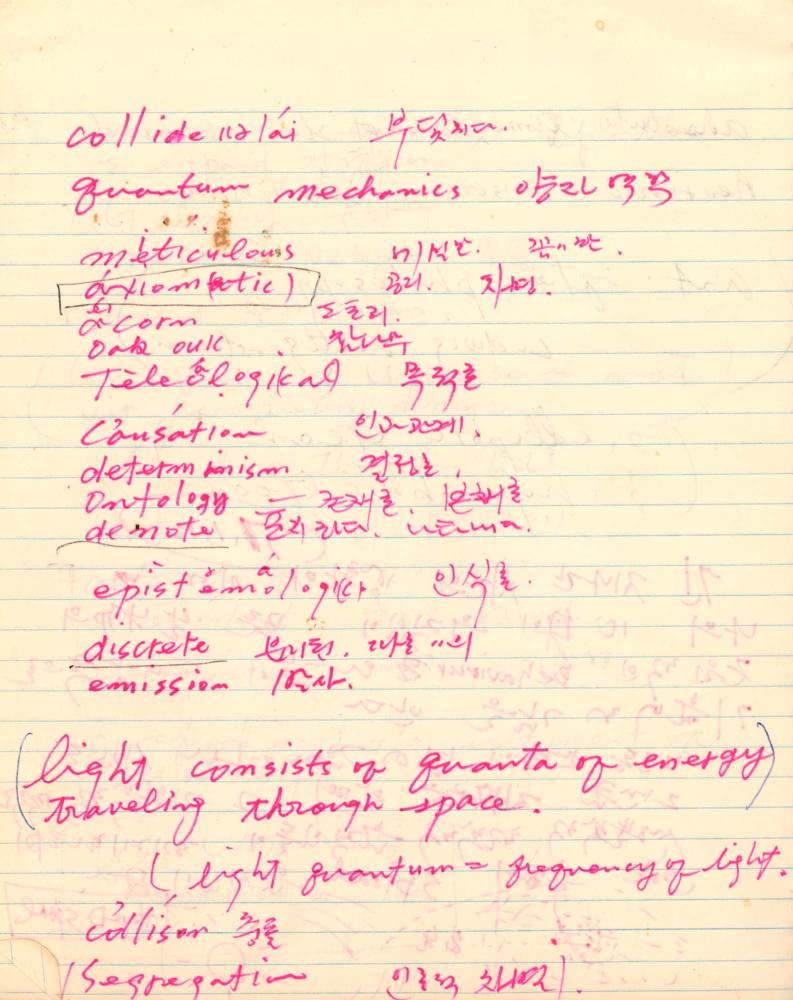 collide 부딪치다.
quantum mechanics 양자역학
meticulous
axiom(atic) 공리. 자명.
acorn 도토리.
oak 참나무
Teleological 목적론
Causation 인과관계.
determinism 결정론.
Ontology — 존재론, 본체론
denote 표시하다. 나타내다.
epistemological 인식론.
discrete 분리된. 따로"의
emission 방사.
(light consists of quanta of energy)
traveling through space.
( light quantum = frequency of light.
collison 충돌
(Segregation 인종적 차별).